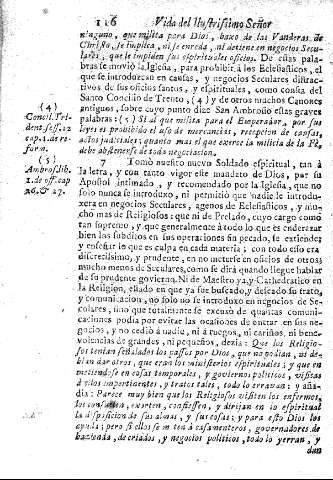 116 Vida del Ilustrissimo Señor
ninguno, que milita para Dios, baxo de las Vanderas de
Christo, se implica, ni se enreda, ni detiene en negocios Secu-
lares, que le impiden sus espirituales oficios. De estas pala-
bras se movió la Iglesia, para prohibir à los Eclesiasticos, el
que se introduzcan en causas, y negocios Seculares distrac-
tivos de sus oficios santos, y espirituales, como consta del
Santo Concilio de Trento, (4) y de otros muchos Canones
antiguos, sobre cuyo punto dize San Ambrosio estas graves
palabras: (5) Si al que milita para el Emperador, por sus
leyes es prohibido el uso de mercancias, recepcion de causas,
actos judiciales; quanto mas el que exerce la milicia de la Fè,
debe abstenerse de toda negociacion.
(4)
Concil. Tri-
dent. sess. 22
cap. 1. de re-
form.
(5)
Ambros. lib.
1. de off. cap
26. & 27.
7 Tomò nuestro nuevo Soldado espiritual, tan à
la letra, y con tanto vigor este mandato de Dios, por su
Apostol intimado, y recomendado por la Iglesia, que no
solo nunca se introduxo, ni permitiò que nadie le introdu-
xera en negocios Seculares, agenos de Eclesiasticos, y mu-
cho mas de Religiosos; que ni de Prelado, cuyo cargo como
tan supremo, y que generalmente à todo lo que es enderezar
bien los subditos en sus operaciones sin pecado, se extiende;
y enseñar lo que es culpa en cada materia; con todo esso era
discretissimo, y prudente, en no meterse en oficios de otros;
mucho menos de Seculares, como se dirà quando llegue hablar
de su prudente govierno. Ni de Maestro yà, y Cathedratico en
la Religion, estado en que yà fue buscado, y deseado su trato,
y comunicacion, no solo no se introduxo en negocios de Se-
culares, sino que totalmente se excusò de quantas comuni-
caciones podia por evitar las ocasiones de entrar en sus ne-
gocios, y no cediò à nadie, ni à ruegos, ni cariños, ni bene-
volencias de grandes, ni pequeños, dezia: Que los Religio-
sos tenian señalados los passos por Dios, que no podian, ni de-
bian dar otros, que eran los ministerios espirituales; y que en
metiendose en cosas temporales, y goviernos politicos, visitas
à vilos impertinentes, y tratos tales, todo lo erravan: y aña-
dia: Parece muy bien que los Religiosos visiten los enfermos,
los consuelen, exorten, confiessen, y dirijan en lo espiritual
la disposicion de sus almas, y sus cosas; y para esto Dios los
ayuda; pero si ellos se meten à casamenteros, governadores de
hazienda, de criados, y negocios politicos, todo lo yerran, y
dan